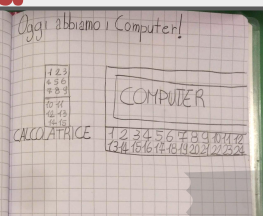 Oggi abbiamo i Computer!
1 2 3
4 5 6
7 8 9
10 11
12 13
14 15
CALCOLATRICE
COMPUTER
1 2 3 4 5 6 7 8 9 10 11 12
13 14 15 16 17 18 19 20 21 22 23 24